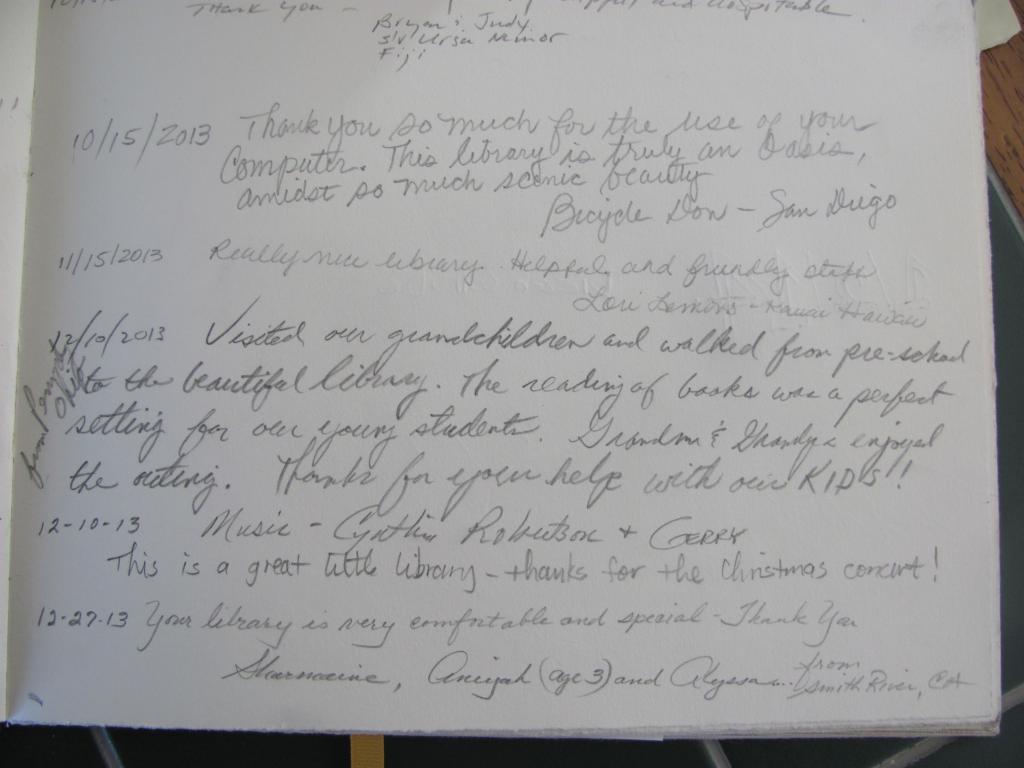 Thank you -
and Hospitable.
Bryan & Judy
s/v Ursa Minor
Fiji
10/15/2013 Thank you so much for the use of your
Computer. This library is truly an Oasis,
amidst so much scenic beauty
Bicycle Don - San Diego
11/15/2013 Really nice library. Helpful and friendly staff
Lori Lemons - Kauai Hawaii
12/10/2013 Visited our grandchildren and walked from pre-school
to the beautiful library. The reading of books was a perfect
setting for our young students. Grandma & Grandpa enjoyed
the outing. Thanks for your help with our KIDS!
from
12-10-13 Music - Cynthia Robertson + GERRY
This is a great little library - thanks for the Christmas concert!
12-27-13 Your library is very comfortable and special - Thank You
Sharmaine, Aniyah (age 3) and Alyssa... from
Smith River, CA